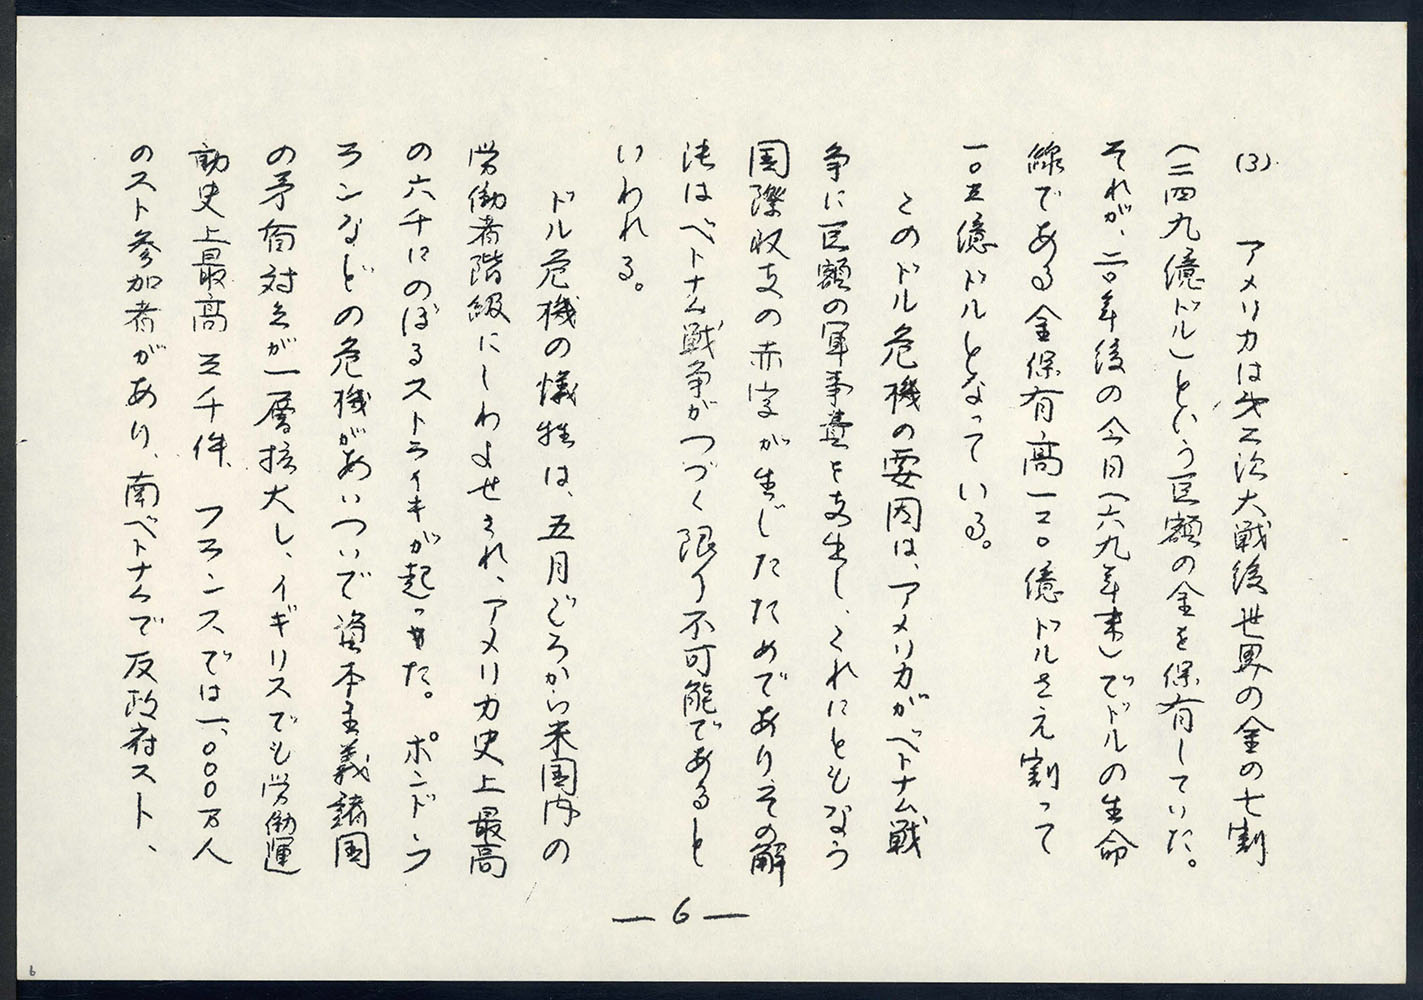 (3) アメリカは才二次大戦後世界の金の七割
(二四九億ドル)という巨額の金を保有していた。
それが、二〇年後の今日(六九年末)でドルの生命
線である金保有高一二〇億ドルさえ割って
一〇五億ドルとなっている。
このドル危機の要因は、アメリカがベトナム戦
争に巨額の軍事費を支出し、これにともなう
国際収支の赤字が生じたためでありその解
決はベトナム戦争がつづく限り不可能であると
いわれる。
ドル危機の犠牲は、五月ごろから米国内の
労働者階級にしわよせされ、アメリカ史上最高
の六千にのぼるストライキが起った。ポンドフ
ランなどの危機があいついで資本主義諸国
の矛盾対立が一層拡大し、イギリスでも労働運
動史上最高三千件、フランスでは一、〇〇〇万人
のスト参加者があり、南ベトナムで反政府スト、
—6—
6